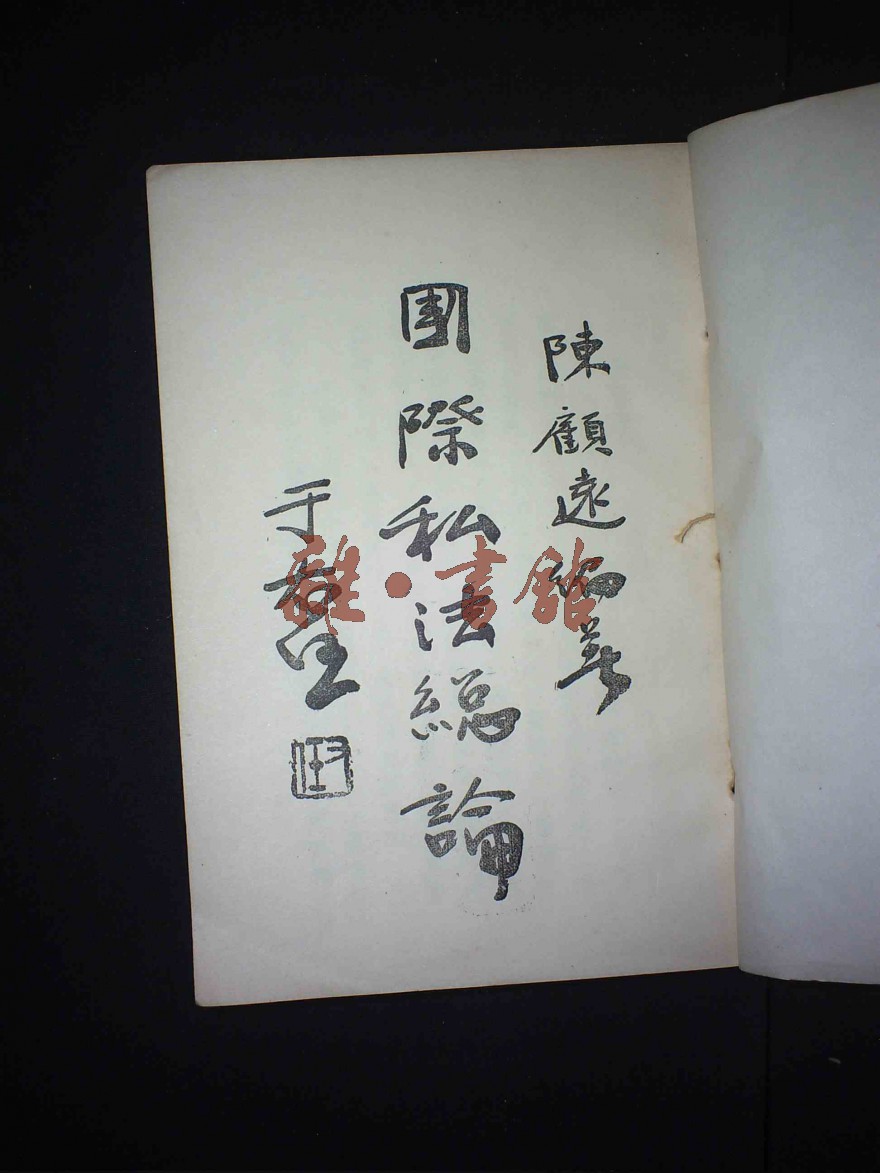 陳顧遠編著
國際私法總論
于右任
右任
雜·書館